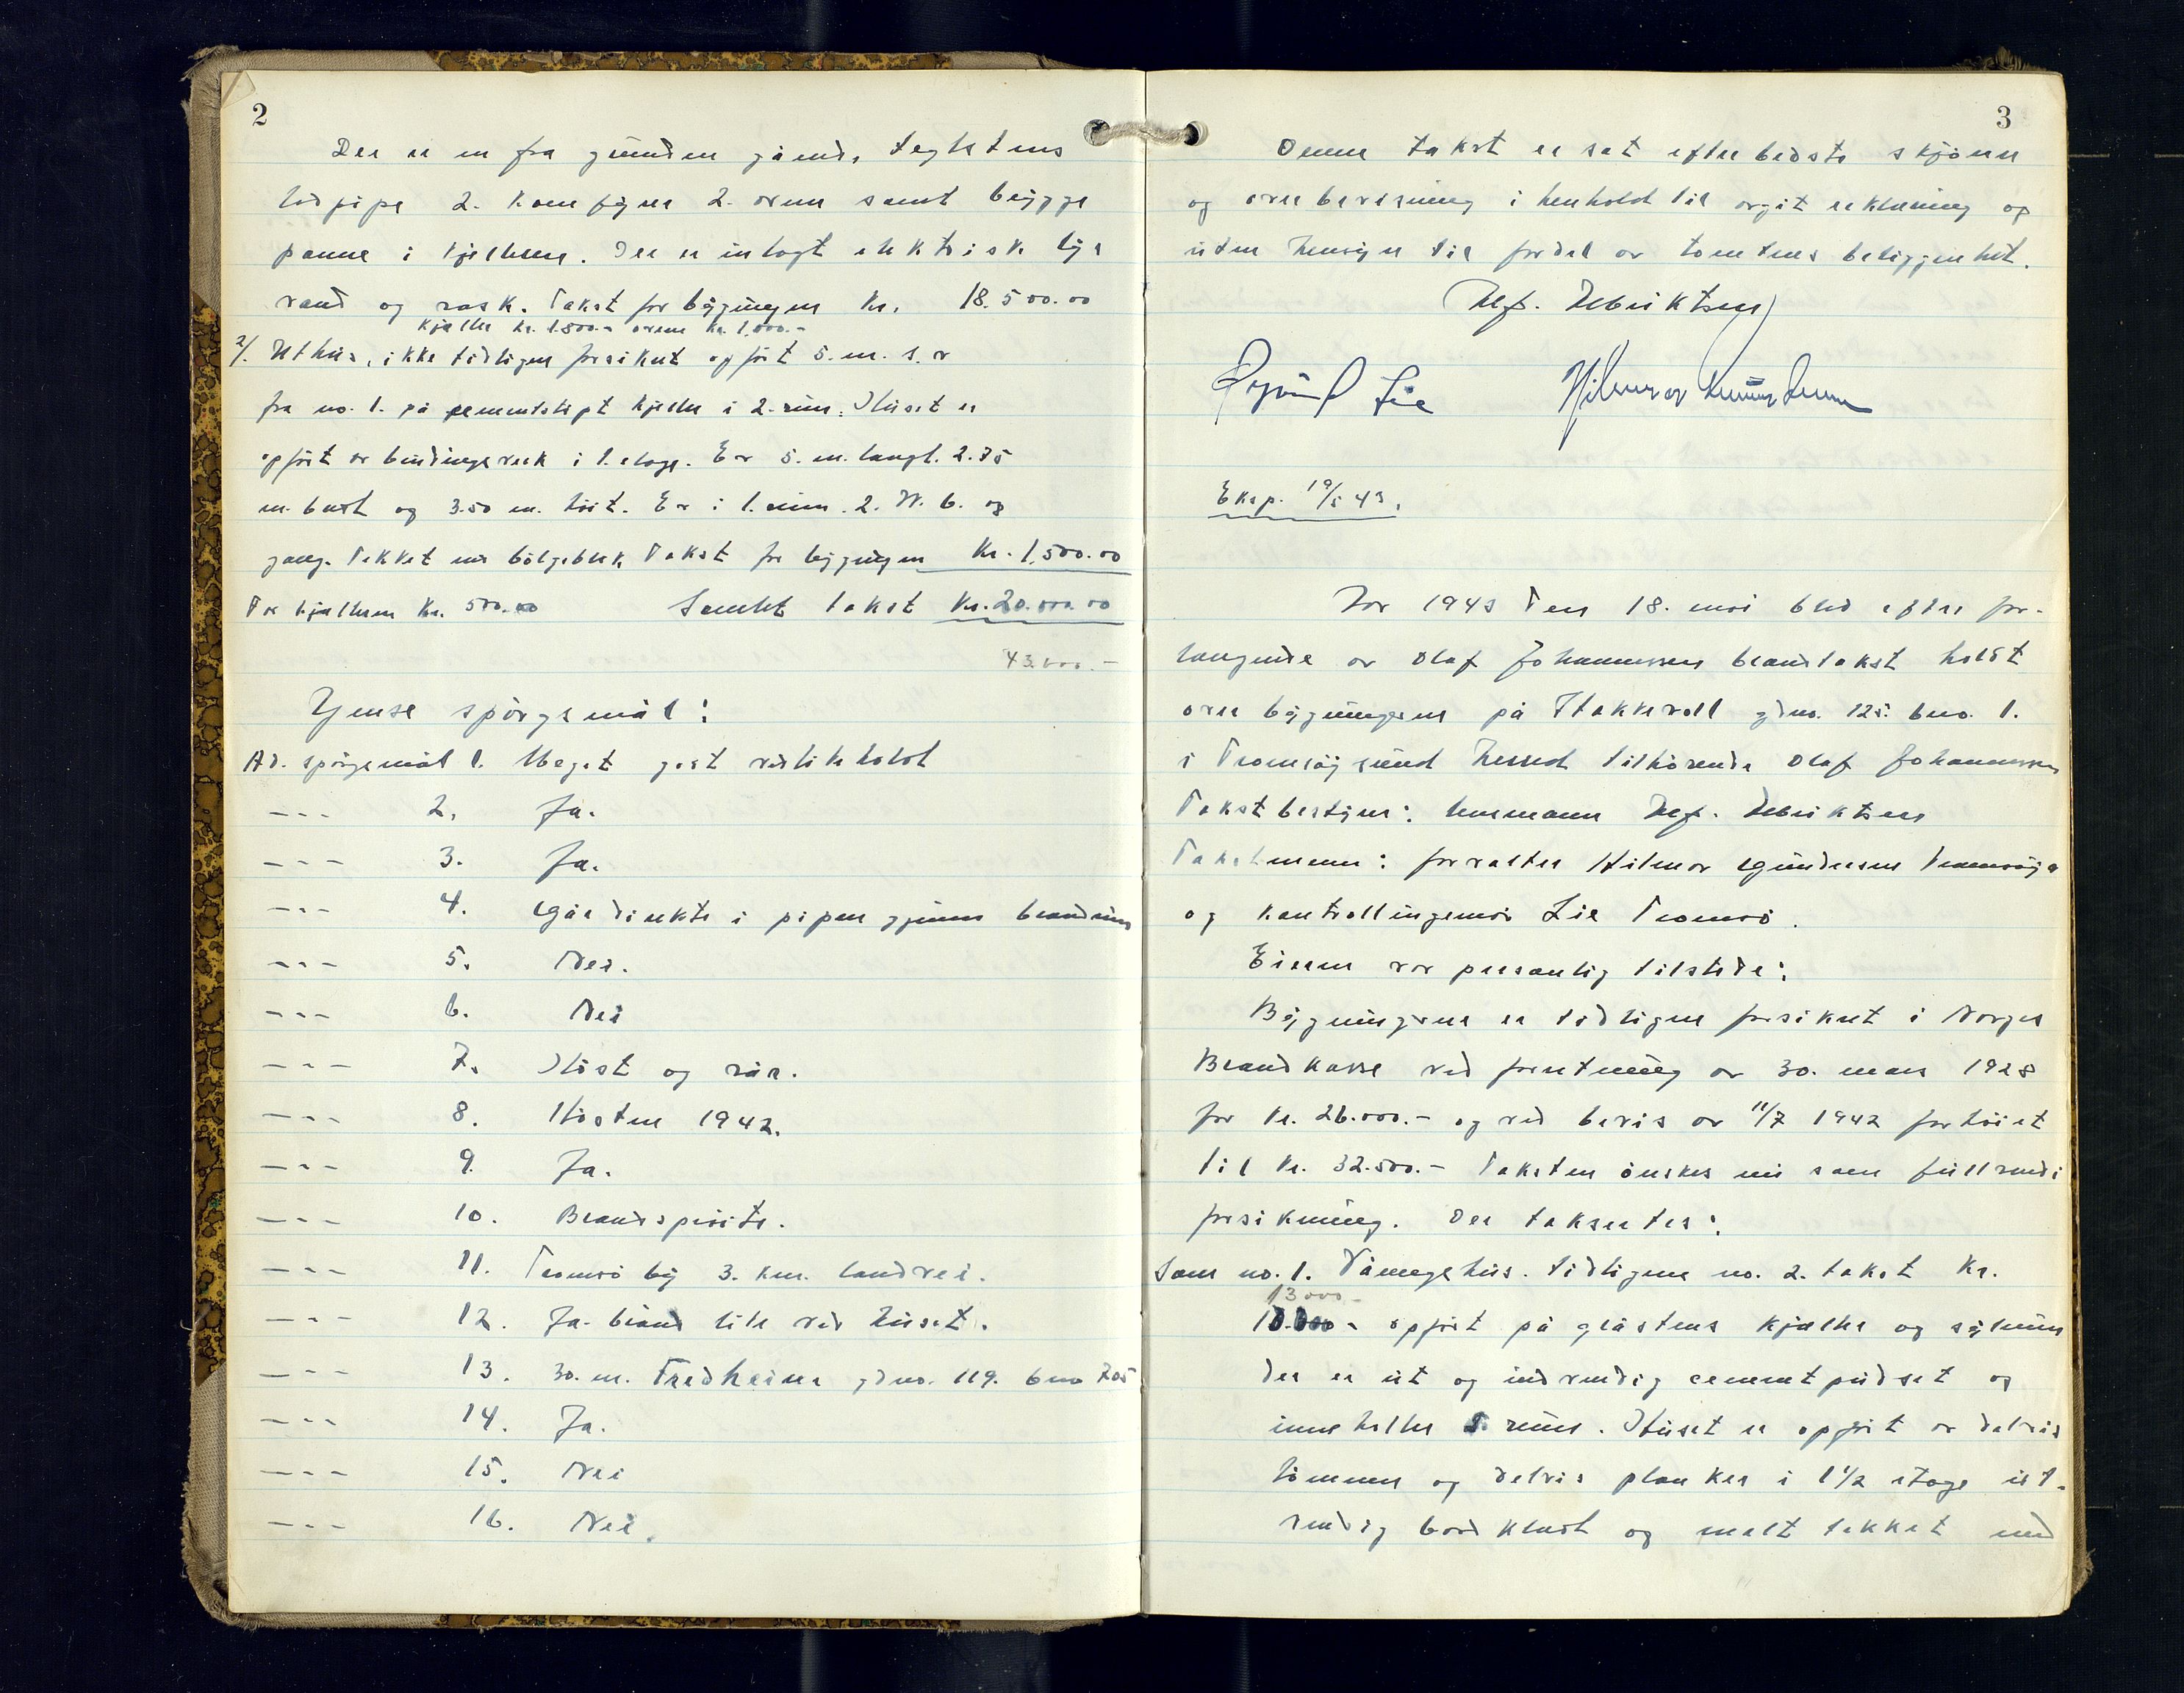 2
Der er en fra grunden gående teglstens
lodpipe 2. komfyrer 2. ovner samt brygge
panne i kjelleren. Der er inlagt elektrisk lys
vand og vask. Takst for bygningen Kr. 18.500.00
Kjeller kr. 1.500.- ovene kr. 1.000.-
2/. Uthus, ikke tidligere forsikret opført 5. m. s.v
fra no. 1. på sementstøpt kjeller i 2. rum. Huset er
opført av bindingsverk i 1. etage. Er 5. m. langt. 2.75
m. bredt og 3.50 m. høit. Er i 1. rum. 2. W. b. og
gang. Tekket med bølgeblek. Takst for bygningen Kr. 1.500.00
For kjelleren Kr. 500.00 Samlet takst Kr. 20.000.00
43.000.-
Ymse spørgsmål:
Ad. spørgsmål 1. Meget godt vedlikeholdt
--- 2. Ja.
--- 3. Ja.
--- 4. Går direkte i pipen gjennem brandmur
--- 5. Nei.
--- 6. Nei
--- 7. Høst og vår.
--- 8. Høsten 1942.
--- 9. Ja.
--- 10. Brandsprøite.
--- 11. Tromsø by 3. km. landvei.
--- 12. Ja. brønd like ved huset.
--- 13. 30. m. Fredheim gdno. 119. bno 705
--- 14. Ja.
--- 15. Nei
--- 16. Nei.
3
Denne takst er sat efter bedste skjønn
og overbevisning i henhold til avgit erklæring og
uten hensyn til fordel av tomtens beliggenhet.
Alf. Albriktsen
Øyvind Lie Hilmar Gundersen
Eksp. 19/5 43.
Aar 1943 den 18. mai blev efter for-
langende av Olaf Johannessen brandtakst holdt
over bygningerne på Stakkevoll gdno. 125. bno. 1.
i Tromsøysund herred tilhørende Olaf Johannessen
Takstbestyrer: lensmann Alf. Albriktsen
Takstmenn: forvalter Hilmar Gundersen Tromsøya
og kontrollingeniør Lie Tromsø.
Eieren var personlig tilstede:
Bygningerne er tidligere forsikret i Norges
Brandkasse ved forretning av 30. mars 1928
for kr. 26.000.- og ved bevis av 11/7 1942 forhøiet
til kr. 32.500.- Taksten ønskes nu som fullverdi
forsikring. Der taksertes:
Som no. 1. Våningshus. tidligere no. 2. takst Kr.
13000-
10.000- opført på gråstens kjeller og sylmur
der er ut og indvendig cementpudset og
inneholder rum. Huset er opført av delvis
tømmer og delvis planker i 1 1/2 etage ut-
vendig bordkledt og malt tekket med